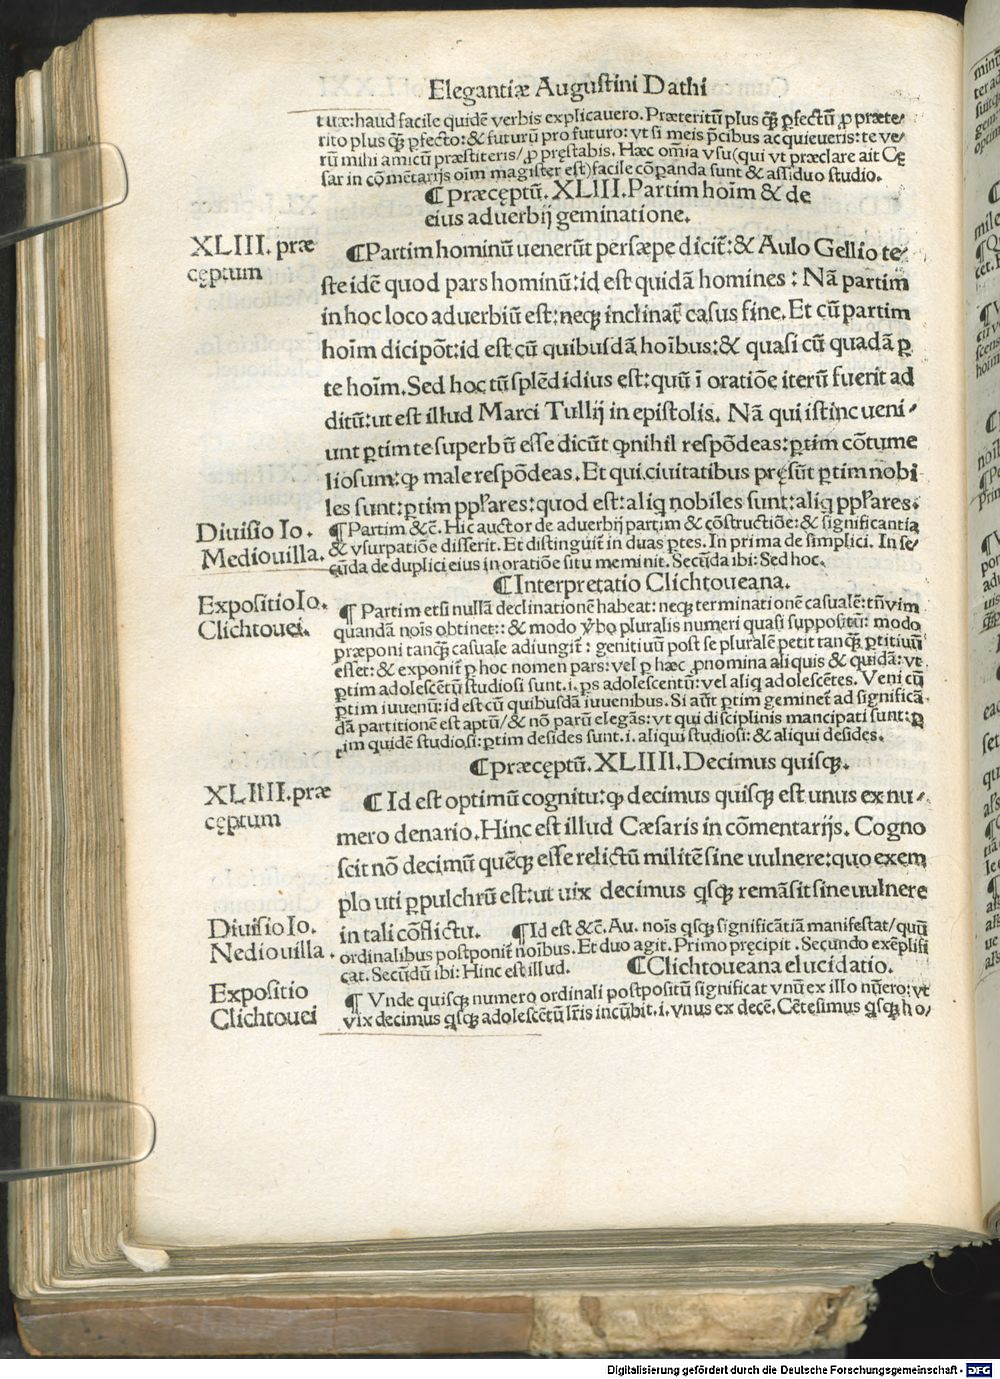 Elegantiæ Augustini Dathi
tuæ: haud facile quidē verbis explicauero. Præteritū plus q̃ꝫ ꝑfectū ꝓ præte⸗
rito plus q̃ꝫ ꝑfecto: & futurū pro futuro: vt si meis p̄cibus acquieueris: te ve⸗
rū mihi amicū præstiteris/ ꝓ pręstabis. Hæc oīmia vsu (qui vt præclare ait Cę
sar in cōmētarijs oīm magister est) facile cōꝑanda sunt & assiduo studio.
¶ præceptū. XLIII. Partim hoīm & de
eius aduerbij geminatione.
XLIII. præ
cęptum
¶ Partim hominū uenerūt persæpe dicit̄: & Aulo Gellio te⸗
ste idē quod pars hominū: id est quidā homines : Nā partim
in hoc loco aduerbiū est: neqꝫ inclinat̄ casus fine. Et cū partim
hoīm dici pōt: id est cū quibusdā hoībus: & quasi cū quadā ꝑ
te hoīm. Sed hoc tū splēdidius est: quū ī oratiōe iterū fuerit ad
ditū: ut est illud Marci Tullij in epistolis. Nā qui istinc ueni⸗
unt ꝑtim te superbū esse dicūt ꝙ nihil respōdeas: ꝑtim cōtume
liosum: ꝙ male respōdeas. Et qui ciuitatibus pręsūt ꝑtim nobi
les sunt: ꝑtim ppl̄ares: quod est: aliq nobiles sunt: aliq ppl̄ares.
Diuisio Io.
Mediouilla.
¶ Partim &c̄. Hic auctor de aduerbij partim & cōstructiōe: & significantia
& vsurpatiōe disserit. Et distinguit̄ in duas ꝑtes. In prima de simplici. In se⸗
cūda de duplici eius in oratiōe situ meminit. Secūda ibi: Sed hoc.
¶ Interpretatio Clichtoueana.
Expositio Io.
Clichtouei.
¶ Partim etsi nullā declinationē habeat: neqꝫ terminationē casualē: tn̄ vim
quandā noīs obtinet:: & modo v̄bo pluralis numeri quasi suppositū: modo
præponi tanq̃ꝫ casuale adiungit̄ : genitiuū post se pluralē petit tanq̃ꝫ ꝑtitiuū
esset: & exponit̄ ꝑ hoc nomen pars: vel ꝑ hæc ꝓnomina aliquis & quidā: vt
ꝑtim adolescētū studiosi sunt. i. ꝑs adolescentū: vel aliq adolescētes. Veni cū
ꝑtim iuuenū: id est cū quibusdā iuuenibus. Si aūt ꝑtim geminet̄ ad significā
dā partitionē est aptū/ & nō parū elegās: vt qui disciplinis mancipati sunt: ꝑ
tim quidē studiosi: ꝑtim desides sunt. i. aliqui studiosi: & aliqui desides.
¶ præcęptū. XLIIII. Decimus quisqꝫ.
XLIIII. præ
cęptum
¶ Id est optimū cognitu: ꝙ decimus quisqꝫ est unus ex nu⸗
mero denario. Hinc est illud Cæsaris in cōmentarijs. Cogno
scit nō decimū quēqꝫ esse relictū militē sine uulnere: quo exem
plo uti ꝑpulchrū est: ut uix decimus qsqꝫ remāsit sine uulnere
in tali cōflictu.
Diuisio Io.
Nediouilla.
¶ Id est &c̄. Au. noīs qsqꝫ significātiā manifestat/ quū
ordinalibus postponit̄ noībus. Et duo agit. Primo pręcipit. Secundo exēplifi
cat. Secūdū ibi: Hinc est illud.
¶ Clichtoueana elucidatio.
Expositio
Clichtouei
¶ Vnde quisqꝫ numero ordinali postpositū significat vnū ex illo nūero: vt
vix decimus qsqꝫ adolescētū lr̄is incūbit. i. vnus ex decē. Cētesimus qsqꝫ ho/
Digitalisierung gefördert durch die Deutsche Forschungsgemeinschaft - DFG